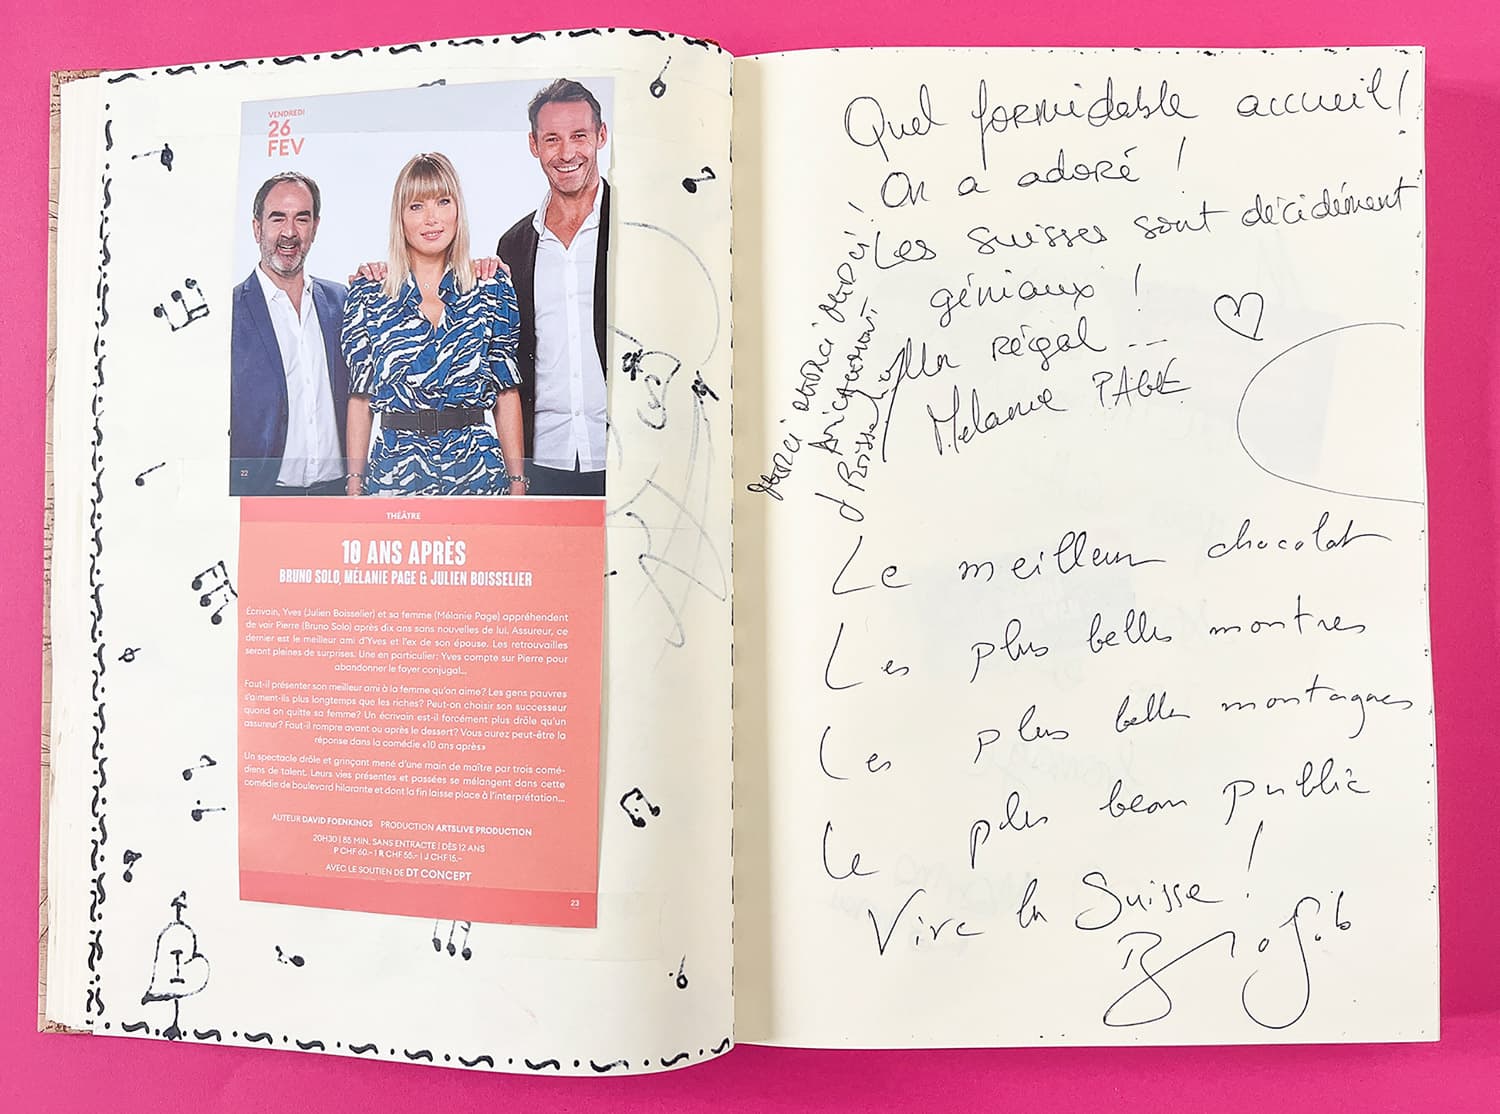 VENDREDI
26
FEV
22
THÉÂTRE
10 ANS APRÈS
BRUNO SOLO, MÉLANIE PAGE & JULIEN BOISSELIER
Écrivain, Yves (Julien Boisselier) et sa femme (Mélanie Page) appréhendent
de voir Pierre (Bruno Solo) après dix ans sans nouvelles de lui. Assureur, ce
dernier est le meilleur ami d'Yves et l'ex de son épouse. Les retrouvailles
seront pleines de surprises. Une en particulier: Yves compte sur Pierre pour
abandonner le foyer conjugal...
Faut-il présenter son meilleur ami à la femme qu'on aime? Les gens pauvres
s'aiment-ils plus longtemps que les riches? Peut-on choisir son successeur
quand on quitte sa femme? Un écrivain est-il forcément plus drôle qu'un
assureur? Faut-il rompre avant ou après le dessert? Vous aurez peut-être la
réponse dans la comédie «10 ans après»
Un spectacle drôle et grinçant mené d'une main de maître par trois comé-
diens de talent. Leurs vies présentes et passées se mélangent dans cette
comédie de boulevard hilarante et dont la fin laisse place à l'interprétation...
AUTEUR DAVID FOENKINOS PRODUCTION ARTSLIVE PRODUCTION
20H30 | 85 MIN. SANS ENTRACTE | DÈS 12 ANS
P CHF 60.- | R CHF 55.- | J CHF 15.-
AVEC LE SOUTIEN DE DT CONCEPT
23
Quel formidable accueil!
On a adoré !
Les suisses sont décidément
géniaux !
Un régal ...
Mélanie PAGE
merci merci merci !
Le meilleur chocolat
Les plus belles montres
Les plus belles montagnes
Le plus beau public
Vive la Suisse !
Bruno Solo